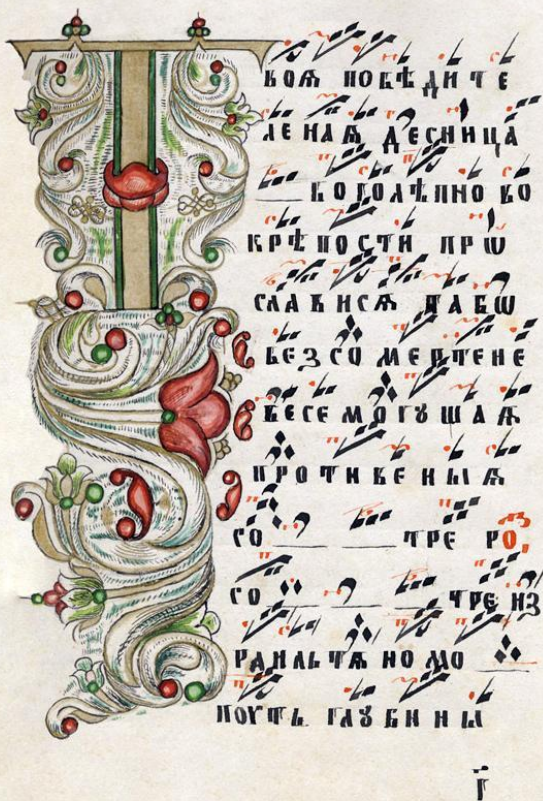 ТВОѦ ПОБѢДИ ТЕ
ЛЕ НАѦ ДЕСНИЦА
БОГОЛѢПНО ВО
КРѢПОСТИ ПРѠ
СЛАВИСѦ ТАБѠ
БЕЗСО МЕРТЕНЕ
ВЕСЕ МОГꙊЩАѦ
ПРОТИВЕНЫѦ
СО ТРЕ РОⷥ
СО ТРЕ ИЗ
РАИЛЬТѦНОМО
ПОУТЬ ГЛꙊБИНЫ
г҃